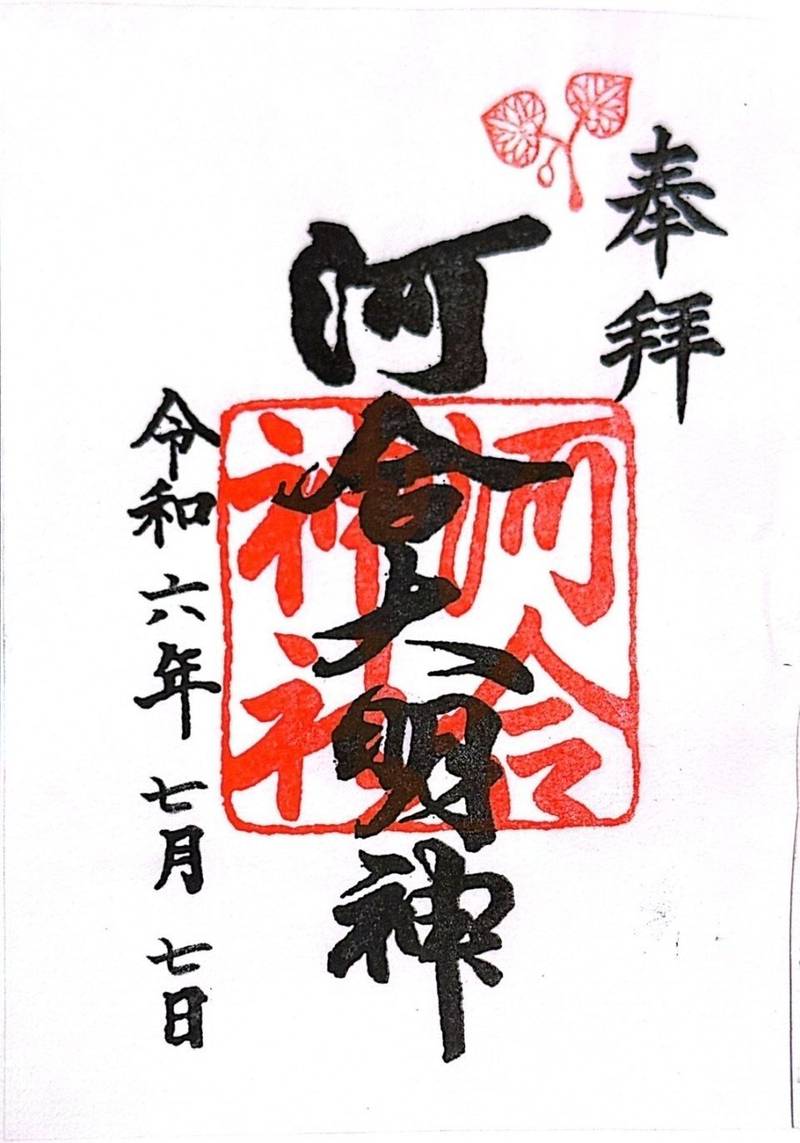 奉拝
河合大明神
河合
神社
令和六年七月七日